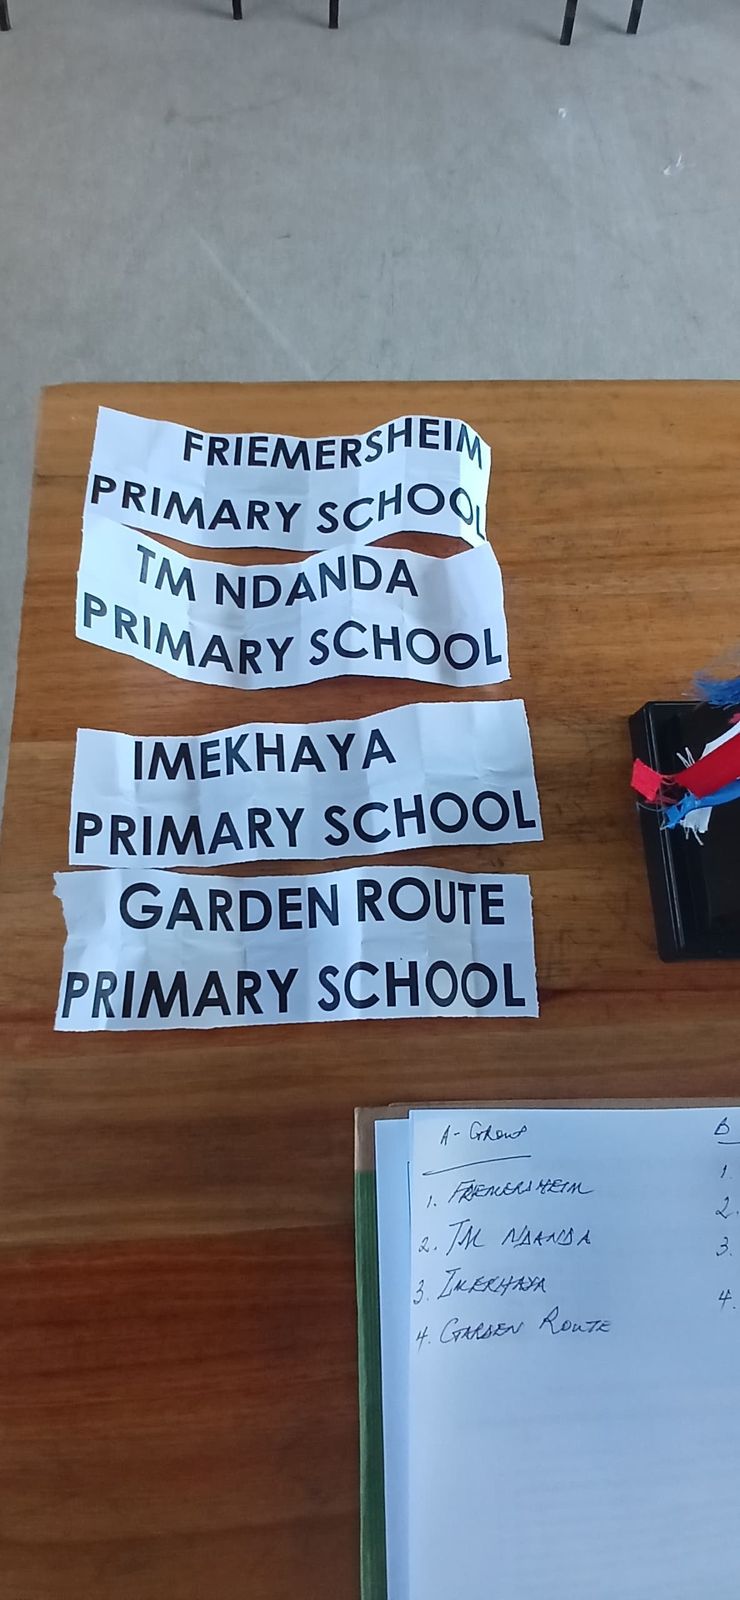 FRIEMERSHEIM
PRIMARY SCHOOL
TM NDANDA
PRIMARY SCHOOL
IMEKHAYA
PRIMARY SCHOOL
GARDEN ROUTE
PRIMARY SCHOOL
A- Group
1. FRIEMERSHEIM
2. TM NDANDA
3. IMEKHAYA
4. GARDEN ROUTE
B
1.
2.
3.
4.